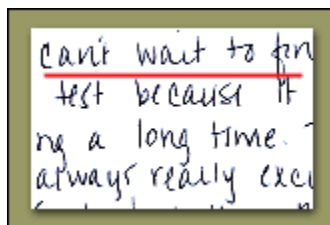 can't wait to fin
test because it
ng a long time.
always really exci